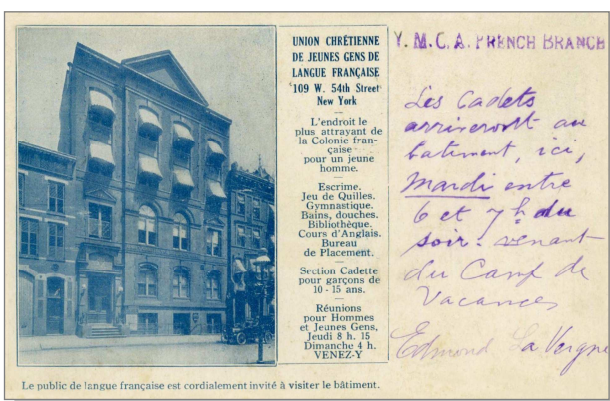 UNION CHRÉTIENNE
DE JEUNES GENS DE
LANGUE FRANÇAISE
109 W. 54th Street
New York
L'endroit le
plus attrayant de
la Colonie fran-
çaise
pour un jeune
homme.
Escrime.
Jeu de Quilles.
Gymnastique.
Bains, douches.
Bibliothèque.
Cours d'Anglais.
Bureau
de Placement.
Section Cadette
pour garçons de
10 - 15 ans.
Réunions
pour Hommes
et Jeunes Gens,
Jeudi 8 h. 15
Dimanche 4 h.
VENEZ-Y
Le public de langue française est cordialement invité à visiter le bâtiment.
Y. M. C. A. FRENCH BRANCH
Les Cadets
arriveront au
batiment, ici,
Mardi entre
6 et 7 h du
soir. venant
du Camp de
Vacances
Edmond La Vergne